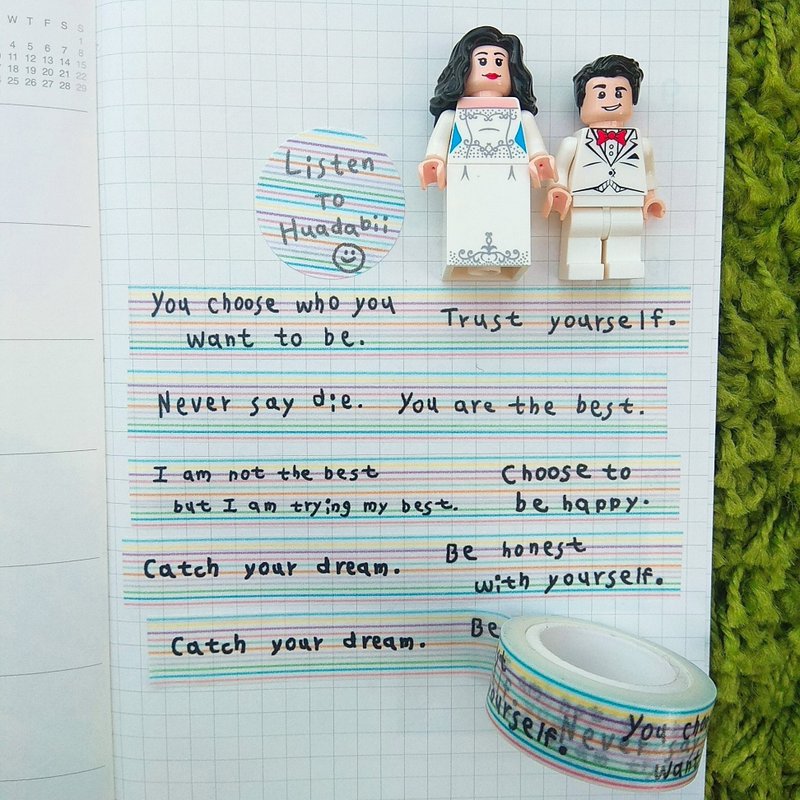 W T F S S
1
4 5 6 7 8
11 12 13 14 15
18 19 20 21 22
25 26 27 28 29
Listen
To
Huadabii
You choose who you
want to be.
Trust yourself.
Never say die. You are the best.
I am not the best
but I am trying my best.
Choose to
be happy.
Catch your dream.
Be honest
with yourself.
Catch your dream.
Be
ourself.
Never
You
want